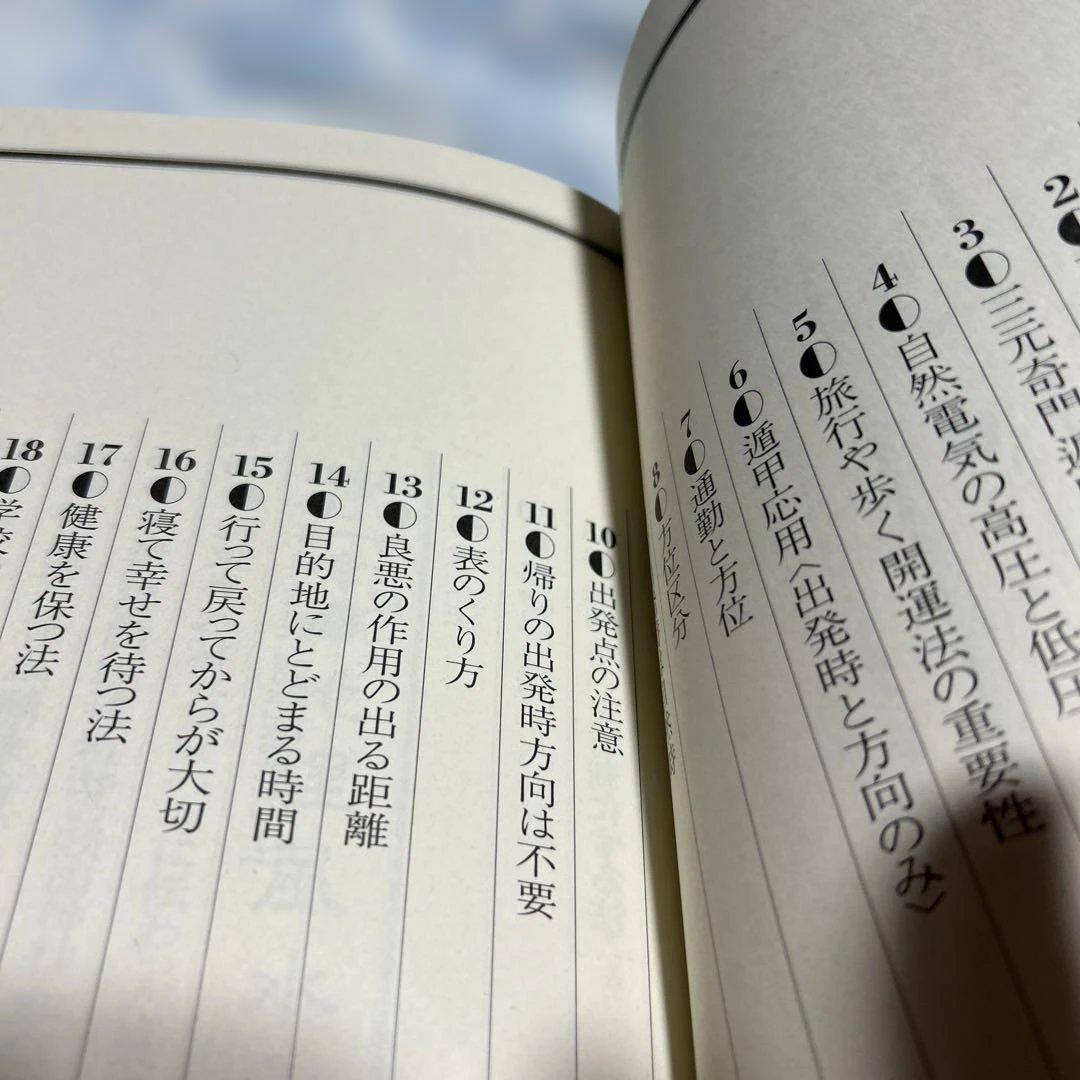 2
3 三元奇門遁
4 自然電気の高圧と低圧
5 旅行や歩く開運法の重要性
6 遁甲応用〈出発時と方向のみ〉
7 通勤と方位
8 方位区分
10 出発点の注意
11 帰りの出発時方向は不要
12 表のくり方
13 良悪の作用の出る距離
14 目的地にとどまる時間
15 行って戻ってからが大切
16 寝て幸せを待つ法
17 健康を保つ法
18 学校